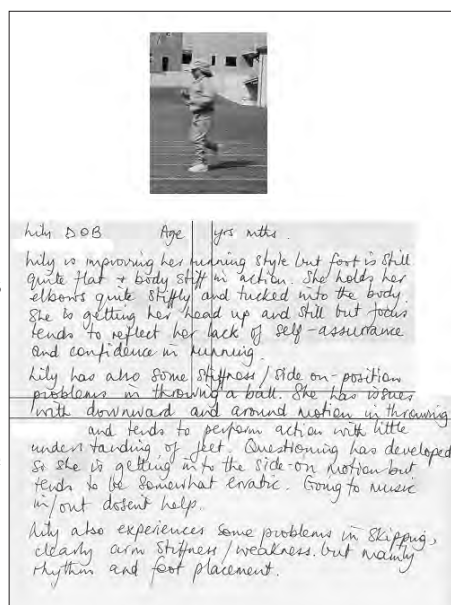 Lily DOB Age yrs mths.
Lily is improving her running style but foot is still
quite flat + body stiff in action. She holds her
elbows quite stiffly and tucked into the body
She is getting her head up and still but focus
tends to reflect her lack of self-assurance
and confidence in running.
Lily has also some stiffness/side on-position
problems in throwing a ball. She has issues
with downward and around motion in throwing
and tends to perform action with little
understanding of feet. Questioning has developed
so she is getting into the side-on motion but
tends to be somewhat erratic. Going to music
in/out dosent help.
Lily also experiences some problems in skipping,
clearly arm stiffness/weakness. but mainly
rhythm and foot placement.